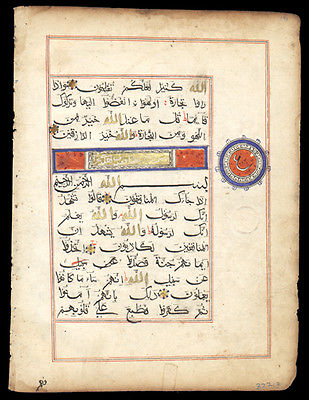 الله كثيرا لعلكم تفلحون واذا
راوا تجارة او لهوا انفضوا اليها وتركوك
قائما قل ما عند الله خير من
اللهو ومن التجارة والله خير الرازقين
بسم الله الرحمن الرحيم
اذا جاءك المنافقون قالوا نشهد
انك لرسول الله والله يعلم
انك لرسوله والله يشهد ان
المنافقين لكاذبون اتخذوا
ايمانهم جنة فصدوا عن سبيل
عن سبيل الله انهم ساء ما كانوا
يعملون ذلك بانهم امنوا
ثم كفروا فطبع على قلوبهم